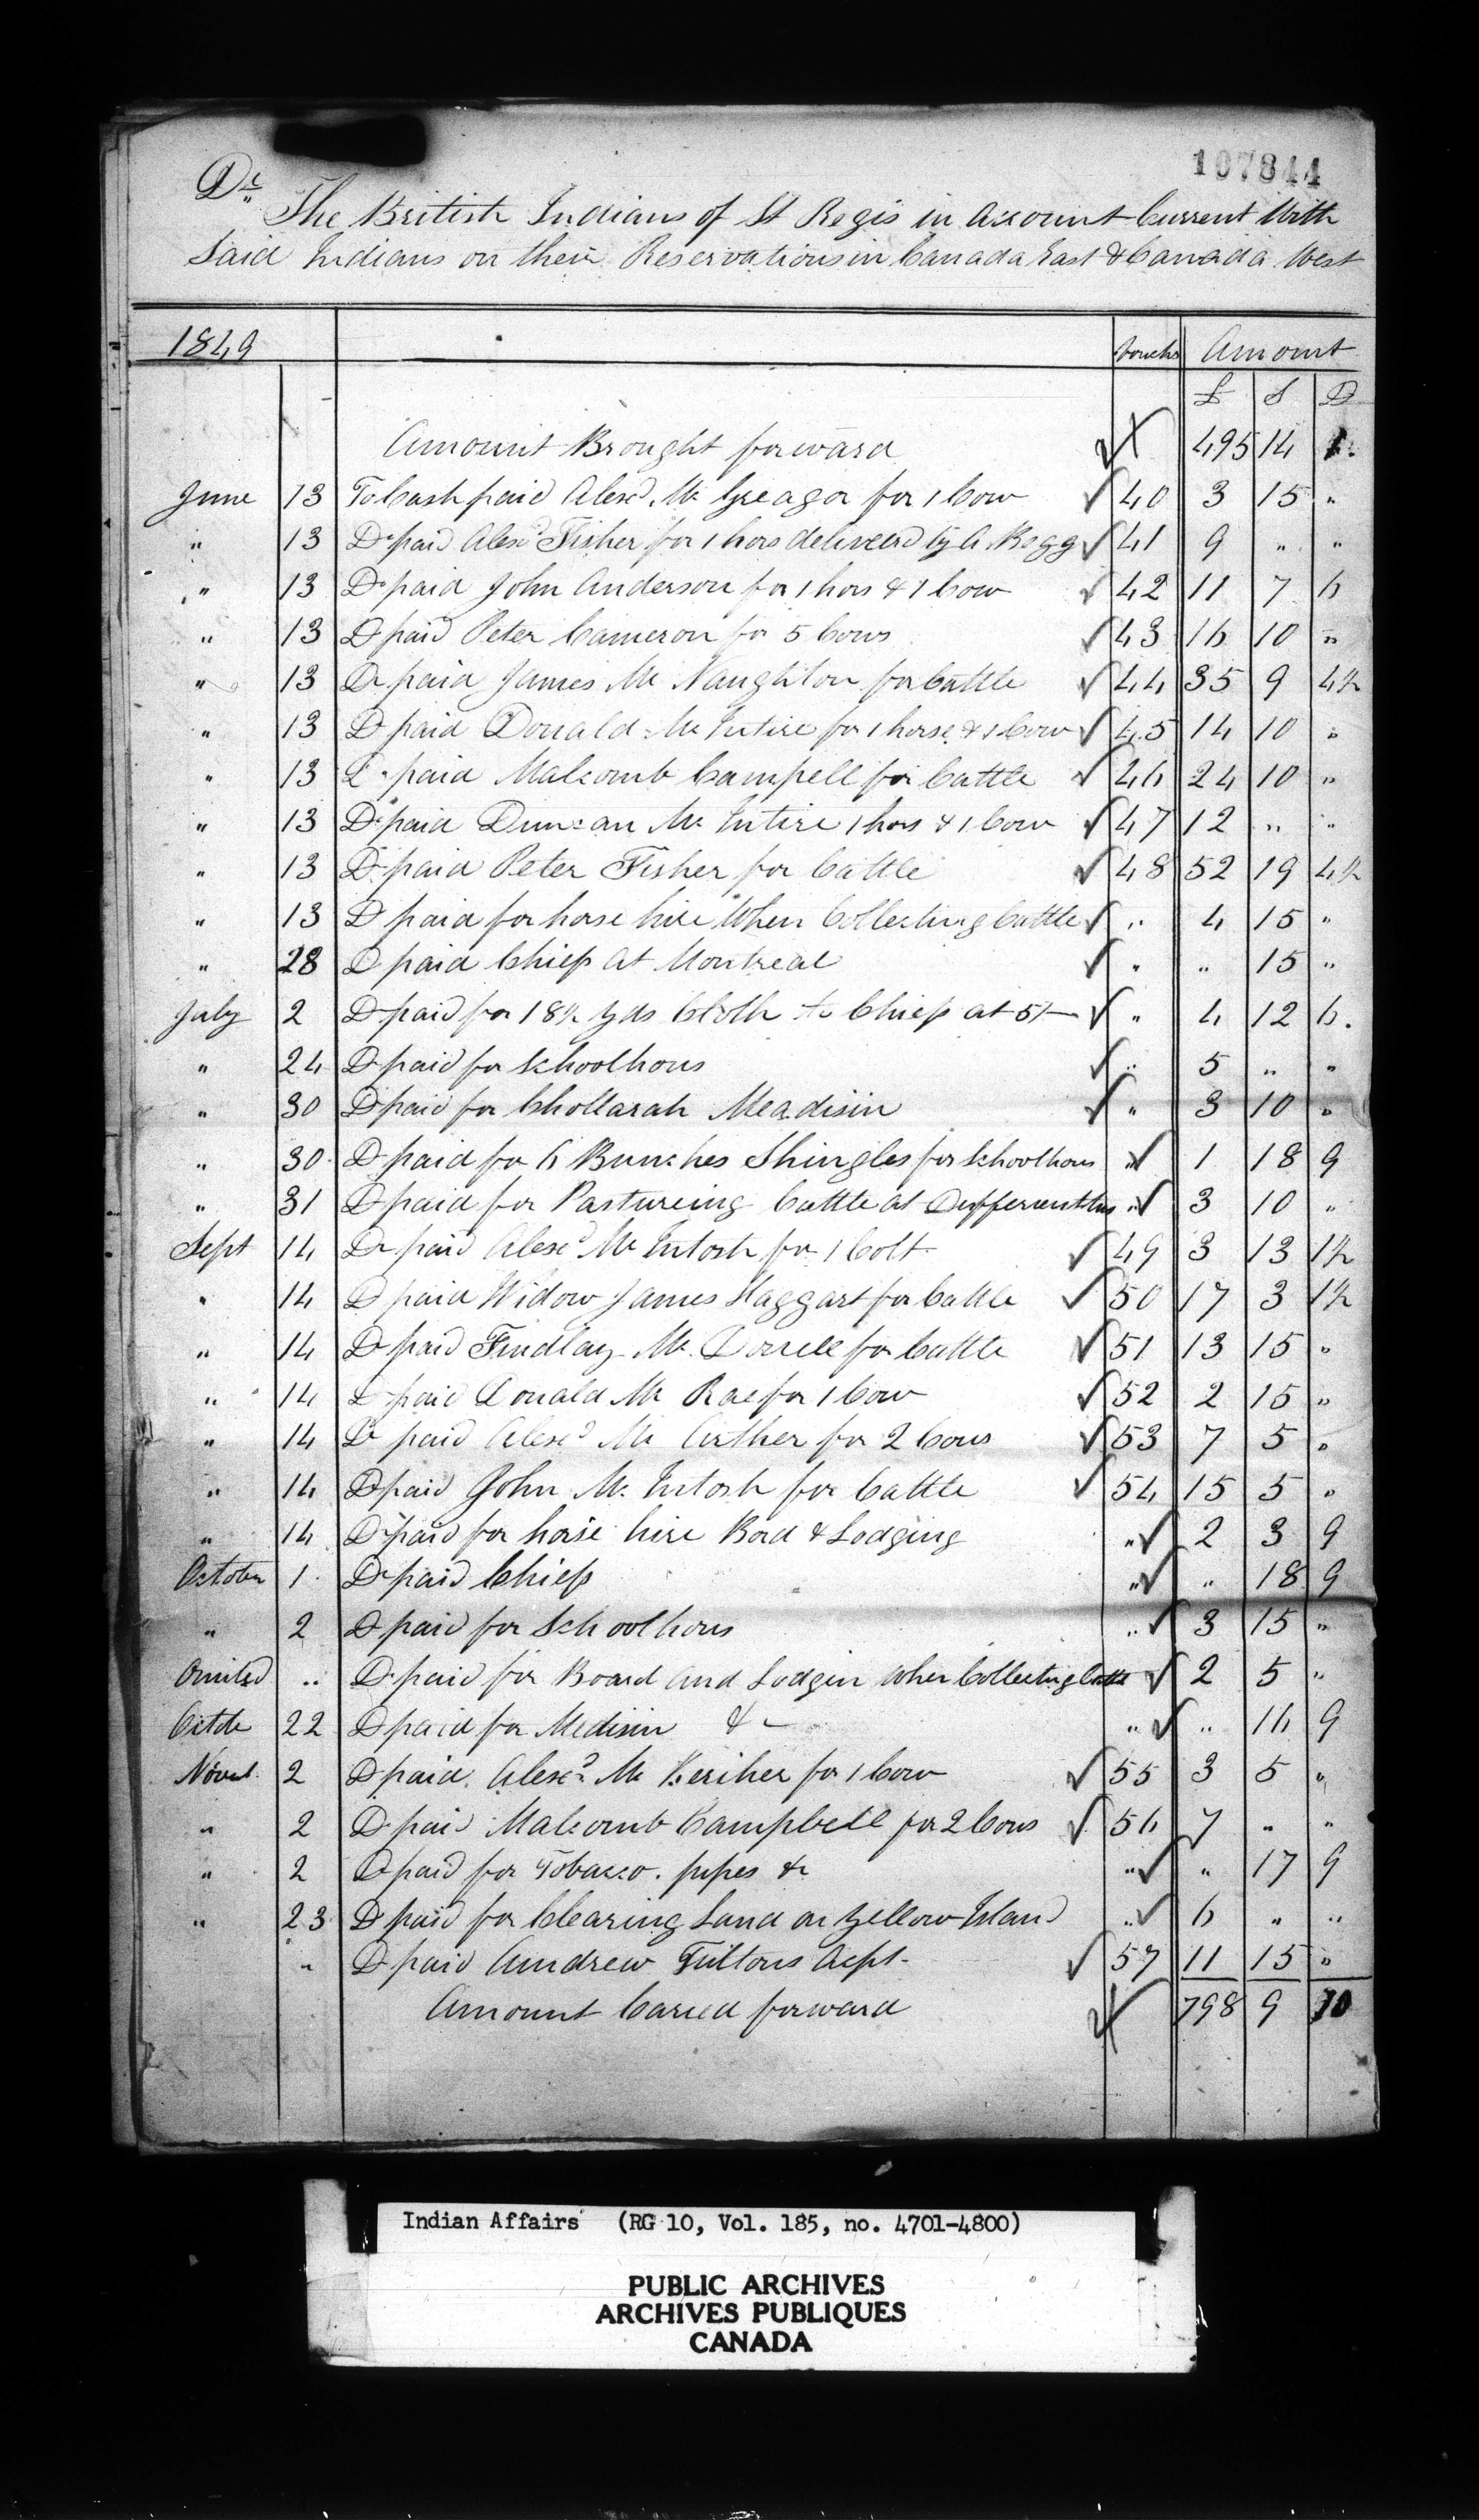 107844
Dr
The British Indians of St Regis in Account Current With
Said Indians on their Reservations in Canada East & Canada West
1849 Vouchs Amount
£ S D
Amount Brought forward 495 14
June 13 To Cash paid Alexd Mc Greagor for 1 Cow 40 3 15 "
" 13 Do paid Alexd Fisher for 1 hors delivered by A. Bogg 41 9 " "
" 13 Do paid John Anderson for 1 hors & 1 Cow 42 11 7 6
" 13 Do paid Peter Cameron for 5 Cows 43 16 10 "
" 13 Do paid James Mc Naughton for Cattle 44 35 9 4½
" 13 Do paid Donald Mc Intire for 1 horse & 1 Cow 45 14 10 "
" 13 Do paid Malcomb Campell for Cattle 46 24 10 "
" 13 Do paid Duncan Mc Intire 1 hors & 1 Cow 47 12 " "
" 13 Do paid Peter Fisher for Cattle 48 52 19 4½
" 13 Do paid for horse hire When Collecting Cattle " 4 15 "
" 28 Do paid Chiefs at Montreal " " 15 "
July 2 Do paid for 18½ yds Cloth to Chiefs at 5/- " 4 12 6
" 24 Do paid for Schoolhous " 5 " "
" 30 Do paid for Chollarah Meadisin " 3 10 "
" 30 Do paid for 6 Bunches Shingles for Schoolhous " 1 18 9
" 31 Do paid for Pastureing Cattle at " 3 10 "
Sept 14 Do paid Alexd Mc Intosh for 1 Colt 49 3 13 1½
" 14 Do paid Widow James Haggart for Cattle 50 17 3 1½
" 14 Do paid Findlay Mc for Cattle 51 13 15 "
" 14 Do paid Donald Mc Rae for 1 Cow 52 2 15 "
" 14 Do paid Alexd Mc Arther for 2 Cows 53 7 5 "
" 14 Do paid John Mc Intosh for Cattle 54 15 5 "
" 14 Do paid for horse hire Bord & Lodging " 2 3 9
October 1 Do paid Chiefs " " 18 9
" 2 Do paid for Schoolhous " 3 15 "
Omited " Do paid for Board and Lodgin when Collecting Cattle 2 5 "
22 Do paid for Medisin &c " " 16 9
Novemb 2 Do paid Alexd Mc for 1 Cow 55 3 5 "
" 2 Do paid Malcomb Campbell for 2 Cows 56 7 " "
" 2 Do paid for Tobacco. pipes &c " " 17 9
" 23 Do paid for Clearing Land on Yellow Island " 6 " "
" Do paid Andrew Fultons Acpt. 57 11 15 "
Amount Caried forward 798 9 10
Indian Affairs (RG 10, Vol. 185, no. 4701-4800)
PUBLIC ARCHIVES
ARCHIVES PUBLIQUES
CANADA